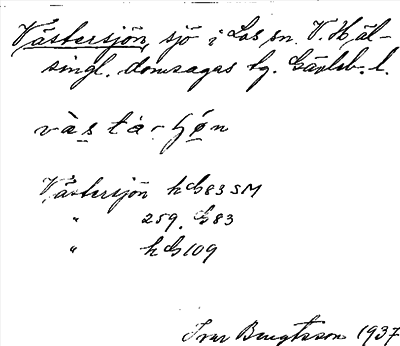 Västersjön, sjö i Los sn. V. Häl-
singl. domsagas tg. Gävleb. l.
Västersjön hG83 SM
" 259. G83
" hG109
Ivar Bengtsson 1937